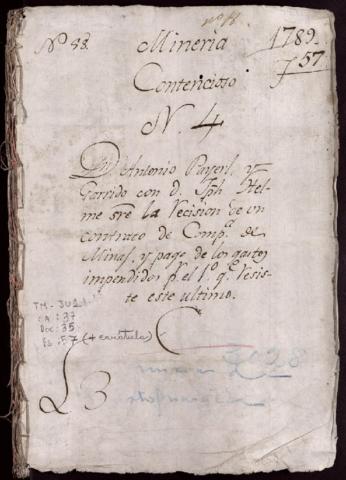 Nº 88.
Mineria
1789
57
Contencioso
N. 4
Dn Antonio Payerl, y
Garrido con d. Jph Hel-
me sre la Recision de un
contrato de Compª de
Minas, y pago de los gastos
impendidos pr el 1º qe Resis-
te este ultimo.
TM-JU1
CA: 37
Doc: 35
Fs: 57 (+ carátula)
L 3